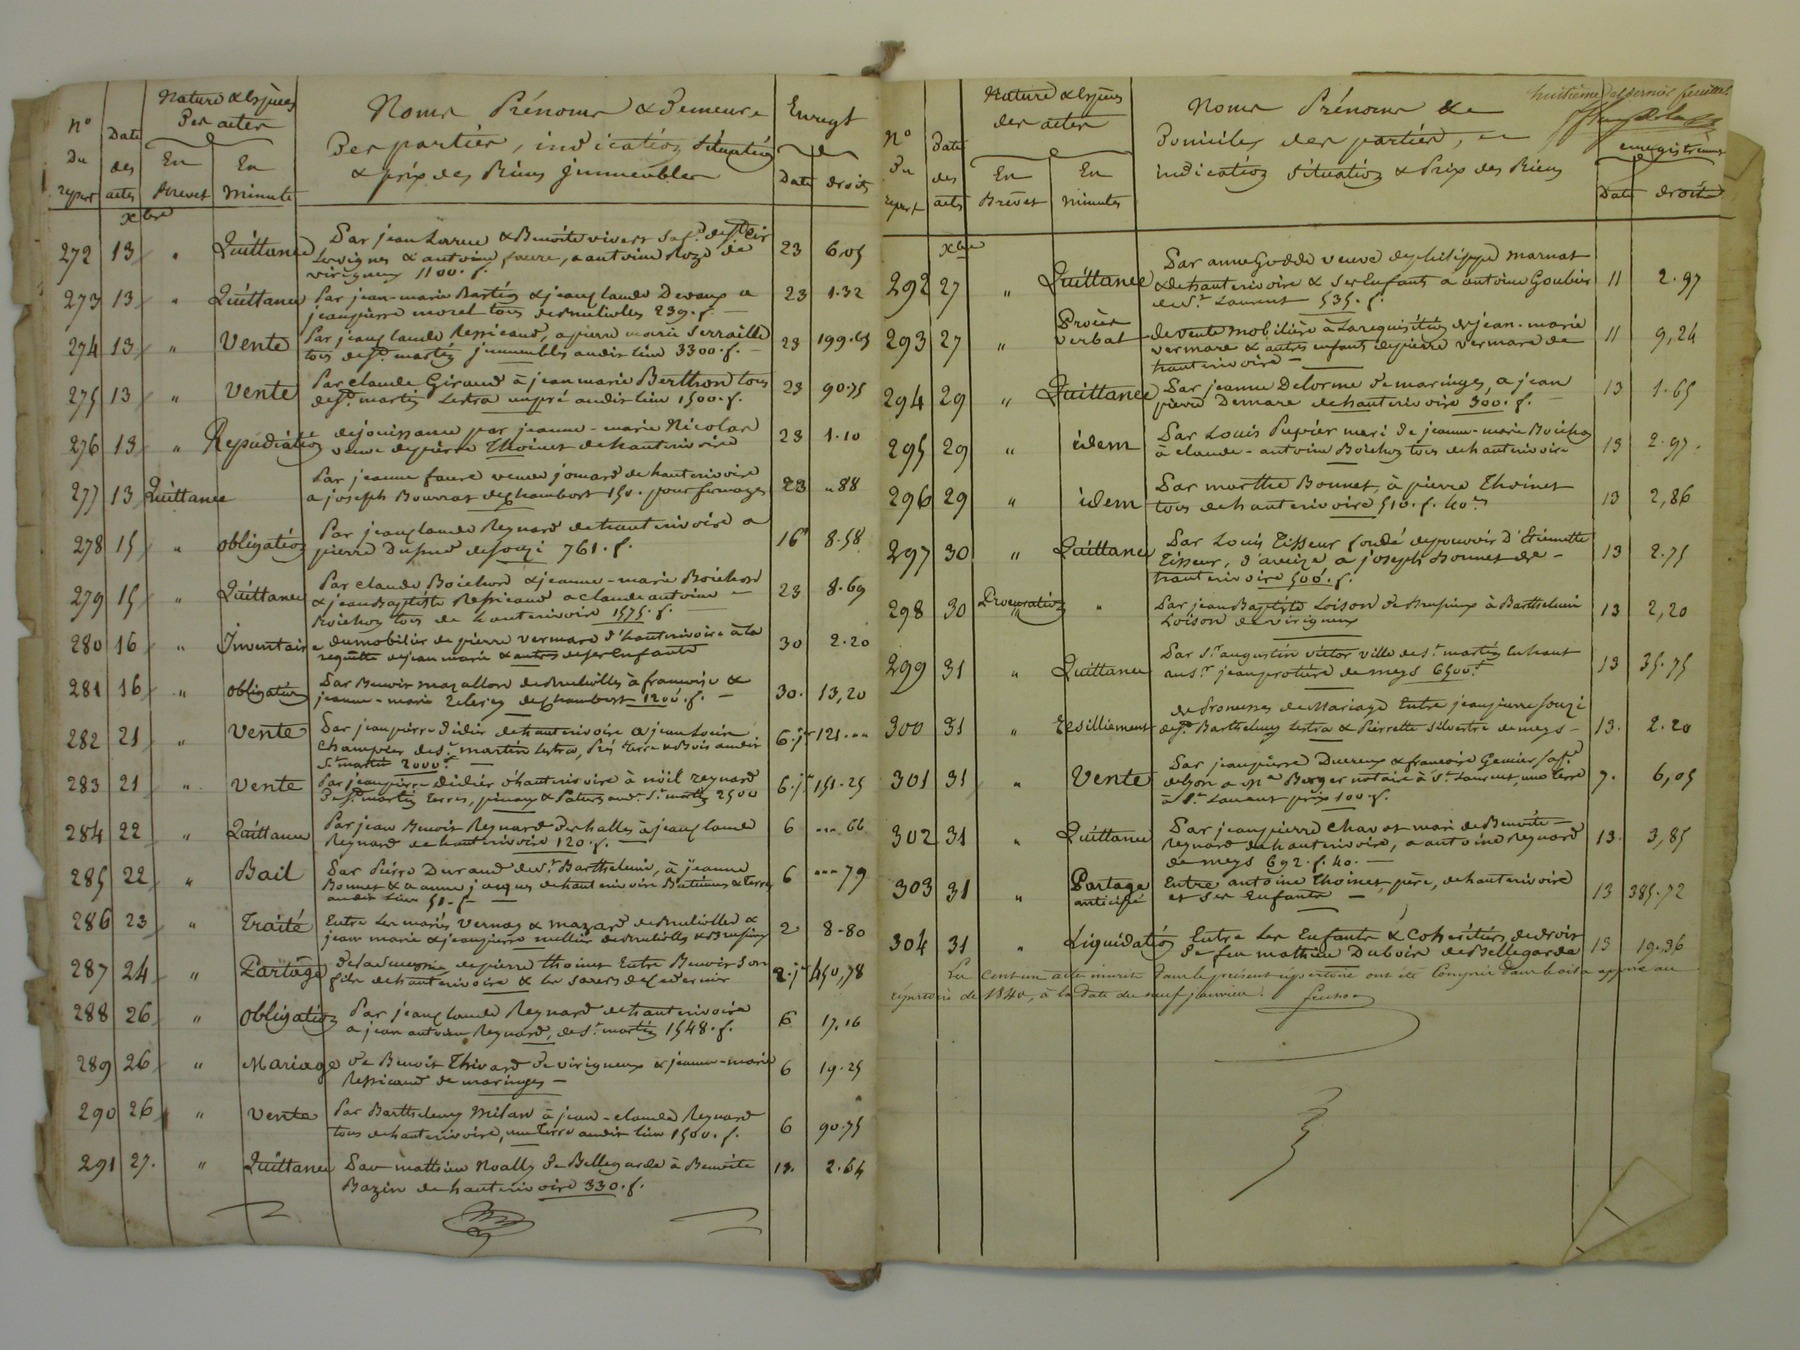 N° Du repert
Date des actes
Nature & Espèces Des actes
En Brevet
En Minute
Noms Prénoms & Demeure
Des parties, indication, Situation
& prix des Biens Immeubles
Enregt
Date droits
xbre
272 13 " Quittance Par jean & Benoite
& antoine favre, a antoine Roze de 23 6.05
virigneux 1100. f.
273 13 " Quittance Par jean-marie Bastin & jean claude Devaux a 23 1.32
jean pierre morel tous de 239. f. —
274 13 " Vente Par jean claude Ressicaud, a pierre marie Serraille 23 199.65
tous de St. martin immeubles audit lieu 3300. f. —
275 13 " Vente Par claude Giraud à jean marie Berthon tous 23 90.75
de St. martin Lestra un pré audit lieu 1500. f.
276 13 " Repudiation de jouissance par jeanne-marie Nicolas 23 1.10
veuve de pierre Thoinet de hauterivoire
277 13 Quittance Par jeanne favre veuve jomard de hauterivoire
a joseph Bouvrat de chambost 150. pour fermages 23 " 88
278 15 " obligation Par jean claude Reynard de hauterivoire a 16 8.58
pierre de souzi 761. f.
279 15 " Quittance Par claude Boichon & jeanne-marie Boichon
& jean Baptiste Ressicaud a claude antoine — 23 8.69
Boichon tous de hauterivoire 1575. f. —
280 16 " Inventaire du mobilier de pierre vermare d'hauterivoire à la 30 2.20
requête de jean marie & autres de ses Enfants
281 16 " obligation Par Benoit mazallon à francoise & 30. 13,20
jeanne-marie de chambost 1200. f. —
282 21 " Vente Par jean pierre Didier de hauterivoire a jean Louis 6.jr 121. "
Champier de St. martin Lestra, Pré terre & Bois audit
St. martin 2000.f —
283 21 " Vente Par jean pierre Didier d'hauterivoire à nöil reynard 6.jr 151.25
De St. martin terres, & Patures aud. St. martin 2500
284 22 " Quittance Par jean Benoit Reynard des halles à jean claude 6 " 66
Reynard de hauterivoire 120. f. —
285 22 " Bail Par Pierre Durand de St. Barthelemi, à jeanne 6 " 79
Bonnet & a anne jacques de hauterivoire Batiments & terres
audit lieu 51. f —
286 23 " Traité Entre les mariés Vernay & mazard &
jean marie & jean pierre & Brussieux 2 8-80
287 24 " Partage de la Succession de pierre thoinet Entre Benoit son 2.jr 450,78
fils de hauterivoire & les soeurs de ce dernier
288 26 " obligation Par jean claude Reynard de hauterivoire 6 17.16
a jean antoine Reynard, de St. martin 1548. f.
289 26 " Mariage De Benoit Thivard de virigneux & jeanne-marie 6 19.25
Ressicaud de maringes —
290 26 " Vente Par Barthelemy Milan à jean-claude Reynard 6 90.75
tous de hauterivoire, une terre audit lieu 1500. f.
291 27. " Quittance Par mathieu Noally De Bellegarde à Benoite 13. 2.64
Bazin de hauterivoire 330. f.
huitième et dernier feuillet
N° Du repert
Date des actes
Nature & Espèces des actes
En Brevet
En Minutes
Noms Prénoms &
Domiciles des parties,
indication Situation & Prix des Biens
enregistrement
Date droits
xbre
292 27 " Quittance Par anne Godde veuve de philippe marnat
de hauterivoire & ses Enfants a antoine Goubier 11 2.97
de St. Laurent 535. f.
293 27 " Procès verbal de vente mobiliere à La requisition de jean-marie 11 9,24
vermare & autres enfants de pierre vermare de
hauterivoire —
294 29 " Quittance Par jeanne Delorme De maringes, a jean 13 1.65
pierre Demare de hauterivoire 300. f. —
295 29 " idem Par Louis Pupier mari de jeanne-marie Boichon 13 2.97.
à claude-antoine Boichon tous de hauterivoire
296 29 " idem Par marthe Bonnet, à pierre Thoinet 13 2,86
tous de hauterivoire 510. f. 40 c
297 30 " Quittance Par Louis Tisseur fondé de pouvoir d'Etiennette 13 2.75
Tisseur, d'aveize a joseph Bonnet de —
hauterivoire 500. f.
298 30 Procuration " Par jean Baptiste Loison De Brussieux à Barthelemi 13 2,20
Loison de virigneux
299 31 " Quittance Par Sr. augustin victor ville de St. martin En haut 13 35.75
au Sr. jean protière de meys 6500.f
300 31 " Résilliement de Promesses de Mariage Entre jean pierre souzi
de St. Barthelemy Lestra & Pierrette Silvestre de meys — 13. 2.20
301 31 " Vente Par jean pierre Ducreux & francoise Genier
de Lyon a Me Berger notaire à St. Laurent, une terre 7. 6,05
à St. Laurent prix 100. f.
302 31 " Quittance Par jean pierre chavot mari de Benoite — 13. 3,85
Reynard de hauterivoire, a antoine Reynard
de meys 692. f. 40. —
303 31 " Partage anticipé Entre antoine Thoinet, père, de hauterivoire 13 385.72
et ses Enfants —
304 31 " Liquidation Entre les Enfants & Cohéritiers de droit 13 19.36
de feu mathieu Dubois de Bellegarde
Les Cent un actes inscrits dans le présent répertoire ont été Compris dans le visa apposé au
répertoire de 1840, à la date du neuf janvier.